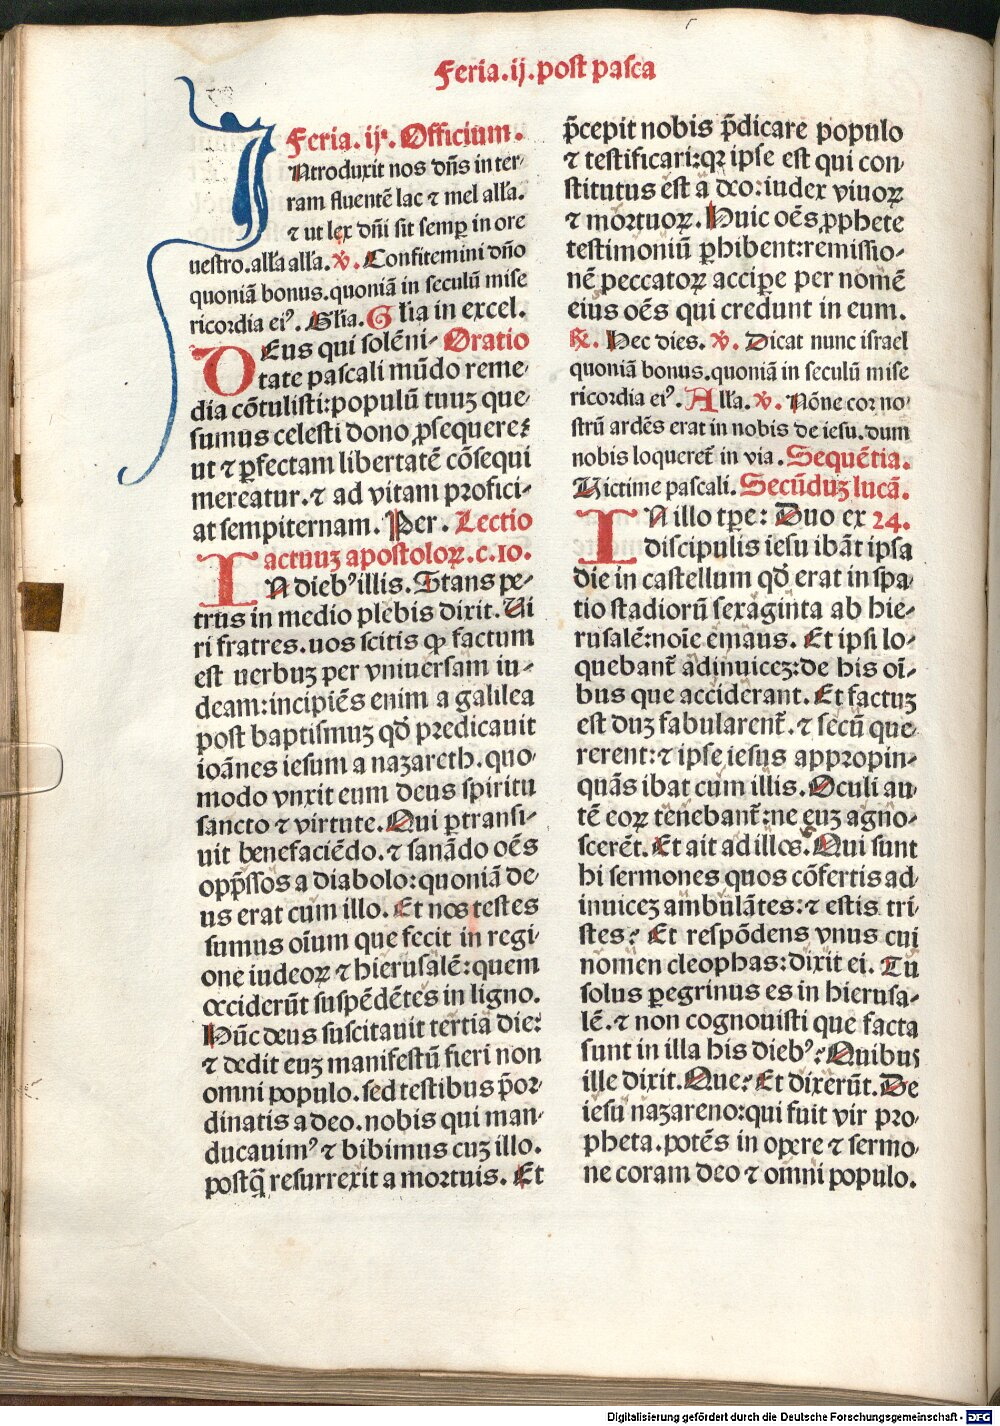 Feria.ij.post pasca
Feria.ijᵃ. Officium.
INtroduxit nos dn̄s in ter⸗
ram fluentē lac ⁊ mel all'a.
⁊ ut lex dn̄i sit semꝑ in ore
uestro.all'a all'a. ℣. Confitemini dn̄o
quoniā bonus.quoniā in seculū mise
ricordia eiꝰ. Gl'ia. Gl'ia in excel.
DEus qui solēni⸗ Oratio
tate pascali mūdo reme⸗
dia cōtulisti:populū tuuȝ que⸗
sumus celesti dono ꝓsequere:
ut ⁊ ꝑfectam libertatē cōsequi
mereatur.⁊ ad vitam profici⸗
at sempiternam. Per. Lectio
actuuȝ apostoloꝝ.c.10.
IN diebꝰ illis. Stans pe⸗
trus in medio plebis dixit. Ui
ri fratres.uos scitis ꝙ factum
est uerbuȝ per vniuersam iu⸗
deam:incipiēs enim a galilea
post baptismuȝ qd̄ predicauit
ioānes iesum a nazareth.quo⸗
modo vnxit eum deus spiritu
sancto ⁊ virtute. Qui ꝑtransi⸗
uit benefaciēdo.⁊ sanādo oēs
opp̄ssos a diabolo:quoniā de⸗
us erat cum illo. Et nos testes
sumus oīum que fecit in regi⸗
one iudeoꝝ ⁊ hierusalē:quem
occiderūt suspēdētes in ligno.
Hūc deus suscitauit tertia die:
⁊ dedit euȝ manifestū fieri non
omni populo.sed testibus p̄or⸗
dinatis a deo.nobis qui man⸗
ducauimꝰ ⁊ bibimus cuȝ illo.
postq̄ resurrexit a mortuis. Et
p̄cepit nobis p̄dicare populo
⁊ testificari:qꝛ ipse est qui con⸗
stitutus est a deo:iudex viuoꝝ
⁊ mortuoꝝ. Huic oēs ꝓphete
testimoniū ꝑhibent:remissio⸗
nē peccatoꝝ accipe per nomē
eius oēs qui credunt in eum.
℟. Hec dies. ℣. Dicat nunc israel
quoniā bonus.quoniā in seculū mise
ricordia eiꝰ. All'a. ℣. Nōne cor no⸗
strū ardēs erat in nobis de iesu.dum
nobis loqueret̄ in via. Sequētia.
Victime pascali. Secūduȝ lucā.
IN illo tp̄e: Duo ex 24.
discipulis iesu ibāt ipsa
die in castellum qd̄ erat in spa⸗
tio stadiorū sexaginta ab hie⸗
rusalē:noīe emaus. Et ipsi lo⸗
quebant̄ adinuiceȝ:de his oī⸗
bus que acciderant. Et factuȝ
est duȝ fabularent̄.⁊ secū que⸗
rerent:⁊ ipse iesus appropin⸗
quās ibat cum illis. Oculi au⸗
tē eoꝝ tenebant̄:ne euȝ agno⸗
scerēt. Et ait ad illos. Qui sunt
hi sermones quos cōfertis ad⸗
inuiceȝ ambulātes:⁊ estis tri⸗
stes? Et respōdens vnus cui
nomen cleophas:dixit ei. Tu
solus peregrinus es in hierusa⸗
lē.⁊ non cognouisti que facta
sunt in illa his diebꝰ? Quibus
ille dixit. Que? Et dixerūt. De
iesu nazareno:qui fuit vir pro⸗
pheta.potēs in opere ⁊ sermo⸗
ne coram deo ⁊ omni populo.
Digitalisierung gefördert durch die Deutsche Forschungsgemeinschaft - DFG